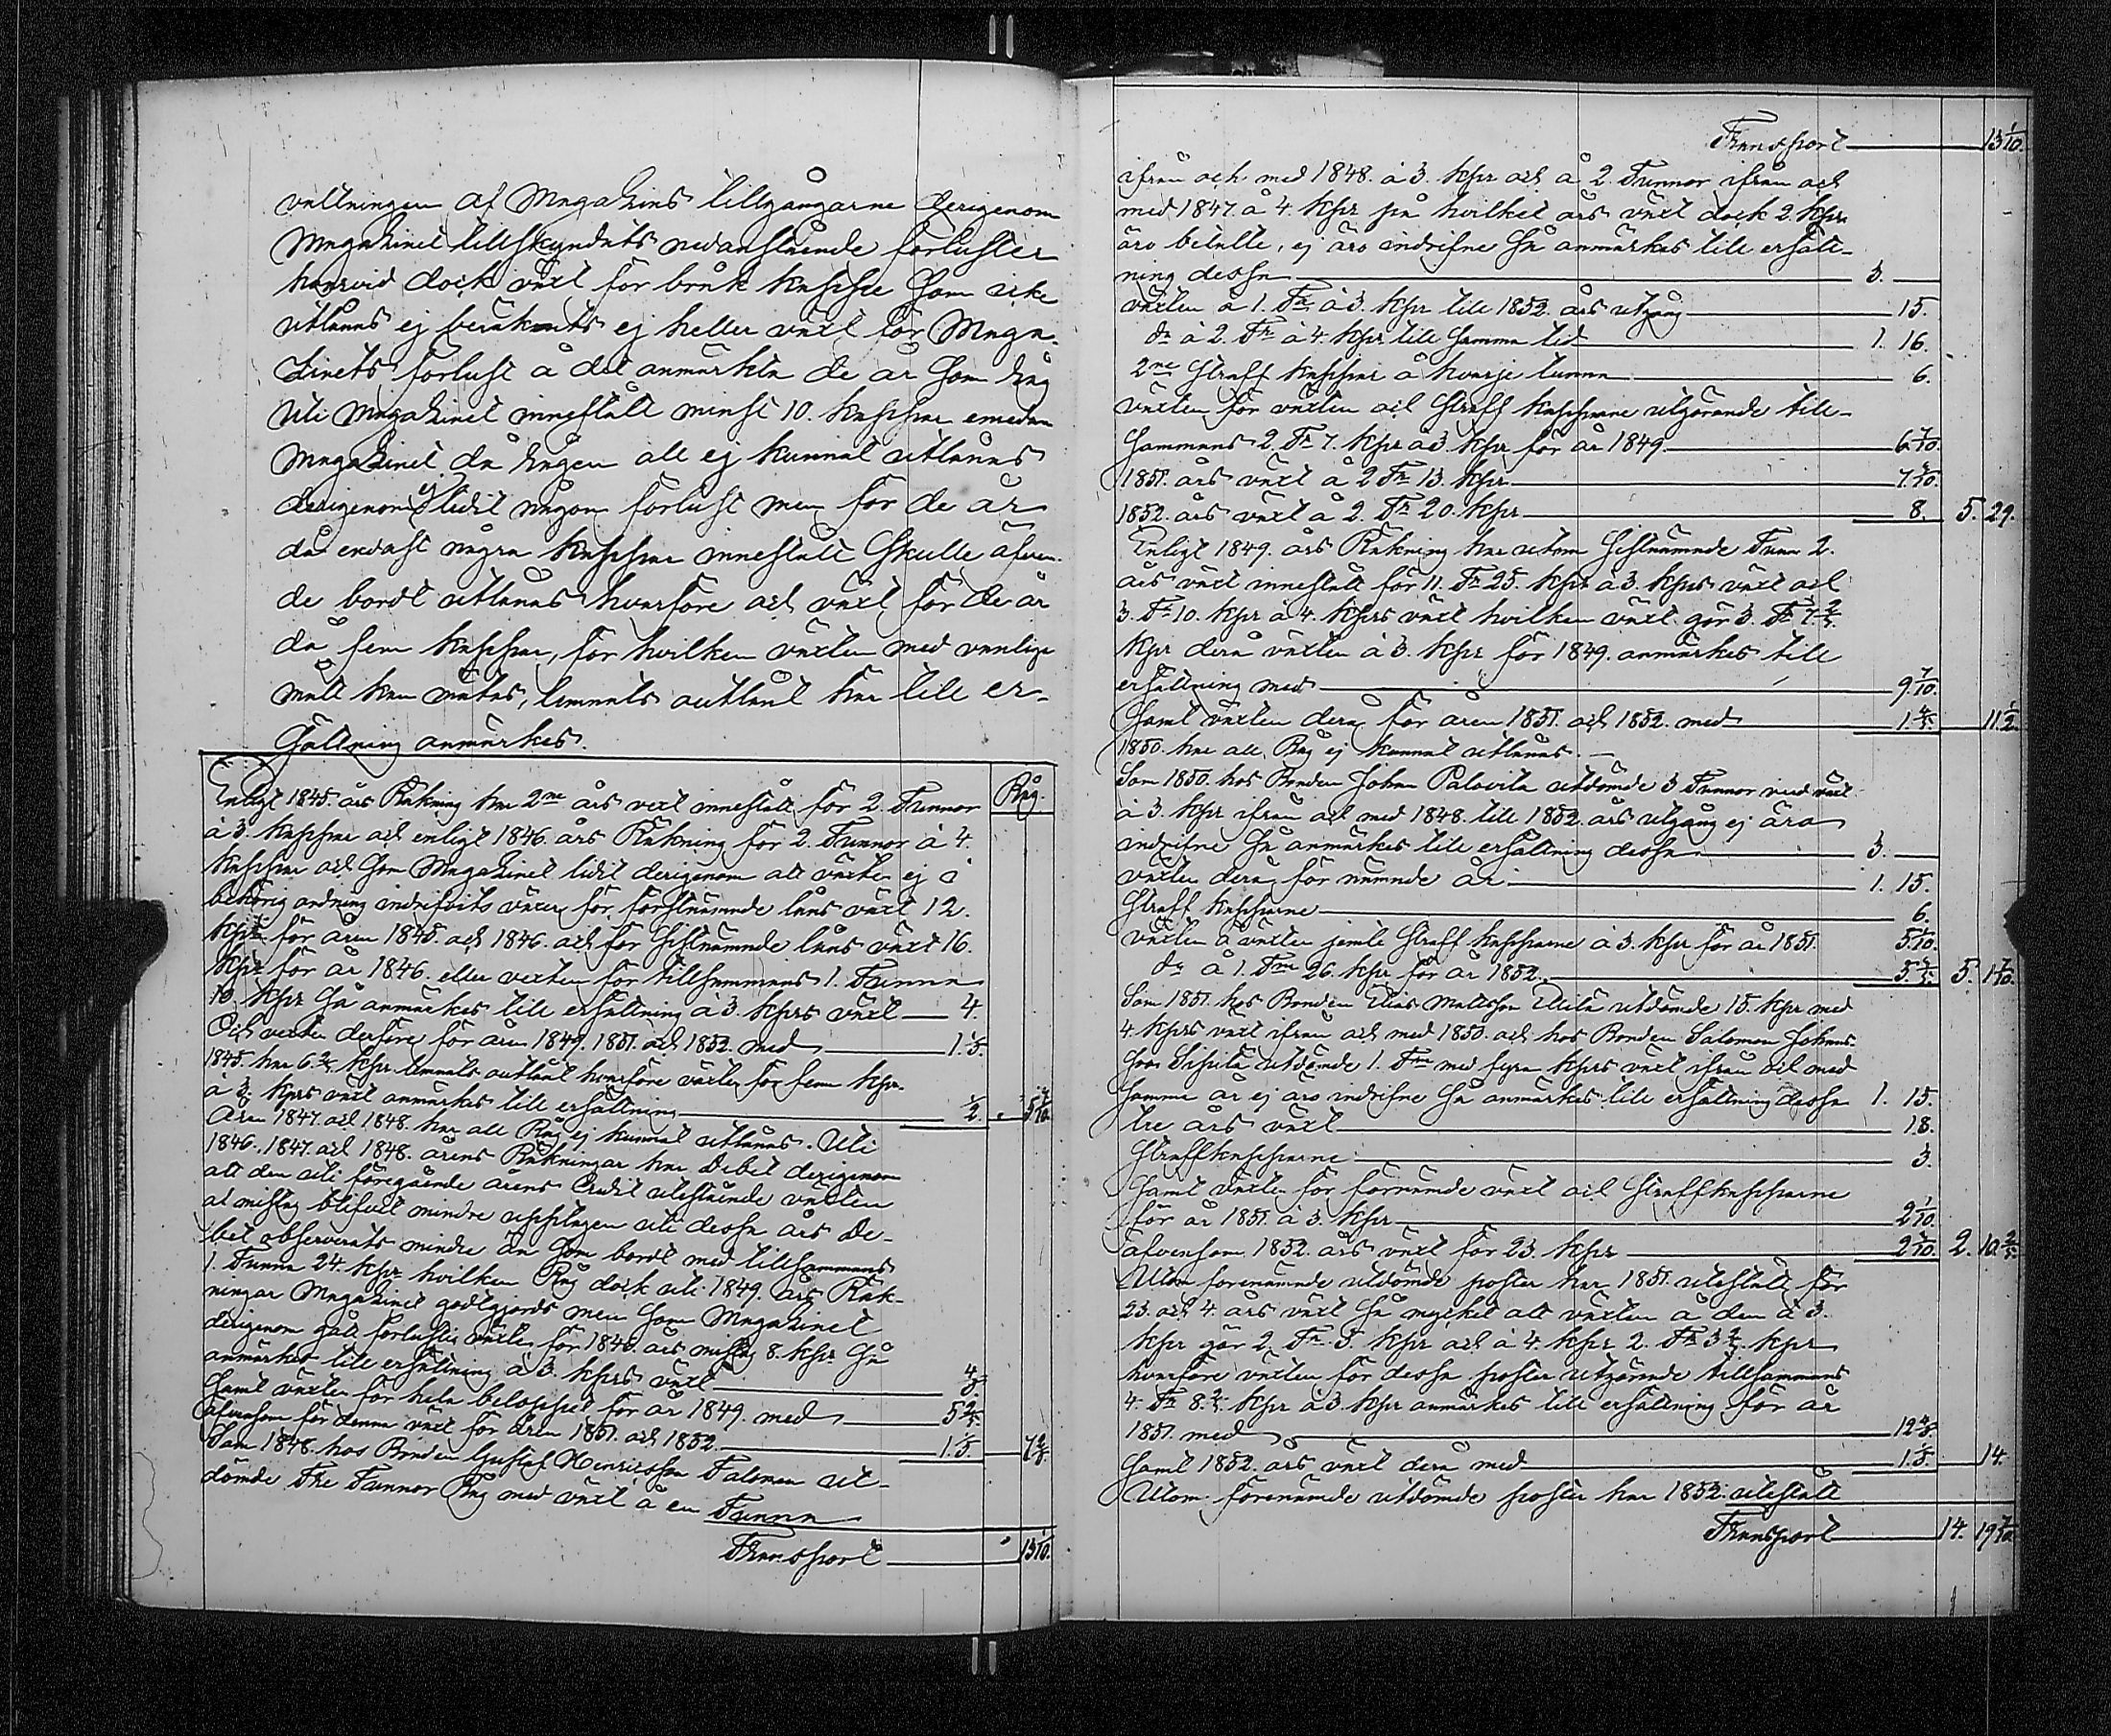 valtningen af Magazins tillgångarne derigenom
Magazinet tillskyndats nedanstående förluster
hvarvid dock växt för bråk kappar som icke
utlånas ej beräknats ej heller växt för Maga-
zinets förlust å det anmärkta de år som Råg
uti Magazinet innestått minst 10. kappar emedan
Magazinet då Rågen all ej kunnat utlånas
derigenom ej lidit någon förlust men för de år
då endast några kappar innestått skulle äfven
de bordt utlånas hvarföre och växt för de år
då fem kappar, för hvilken växten med vanliga
mått kan mätas, lemnats outlånt har till er-
sättning anmärkes.
Råg.
Enligt 1845. års Räkning har 2ne års vext innestått för 2. Tunnor
à 3. kappar och enligt 1846. års Räkning för 2. Tunnor à 4.
kappar och som Magazinet lidit derigenom att växten ej i
behörig ordning indrifvits växer för förstnämnde låns växt 12.
kpr för åren 1845. och 1846. och för sistnämnde låns växt 16.
kpr för år 1846. eller vexten för tillsammans 1. Tunna
10. kpr så anmärkes till ersättning à 3. kprs växt — 4.
Och vexten derföre för åren 1849. 1851. och 1852. med — 1.1/5.
1845. har 6.2/5 kpr lemnats outlånt hvarföre växten för fem kpr.
à 3. kprs växt anmärkes till ersättning — 1/2 " 5 7/10.
Åren 1847. och 1848. har all Råg ej kunnat utlånas. Uti
1846. 1847. och 1848. årens Räkningar har Debet derigenom
att den uti föregående årens Credit utestående växten
af misstag blifvit mindre upptagen uti dessa års De-
bet observerats mindre än som bordt med tillsammans
1. Tunna 24. kpr hvilken Råg dock uti 1849. års Räk-
ningar Magazinet godtgjords men som Magazinet
derigenom gått förlustig växten för 1846. års misstag 8. kpr så
anmärkes till ersättning à 3. kprs växt — 4/5
samt växten för hela beloppet för år 1849. med — 5 2/5.
äfvensom för denna växt för åren 1851. och 1852. — 1.1/5. 7 2/5.
Som 1848. hos Bonden Gustaf Henricsson Taloman ut-
dömde Tre Tunnor Råg med växt å en Tunna
Transport — " 13 1/10.
Transport — 13 1/10.
ifrån och med 1848. à 3. kpr och å 2. Tunnor ifrån och
med 1847. à 4. kpr på hvilket års växt dock 2. kpr
äro betalte, ej äro indrifne så anmärkes till ersätt-
ning dessa — 3. —
växten å 1. Tna à 3. kpr till 1852. års utgång — 15.
do å 2. Tnr à 4. kpr till samma tid — 1. 16.
2ne Straff kappar å hvarje tunna — 6.
växten för växten och Straff kapparne utgörande till-
sammans 2. Tr 7. kpr à 3. kpr för år 1849. — 6 7/10.
1851. års växt å 2 Tr 13. kpr — 7 3/10.
1852. års växt å 2. Tr 20. kpr — 8. 5. 29.
Enligt 1849. års Räkning har utom sistnämnde Tunn 2.
års växt innestått för 11. Tr 25. kpr à 3. kprs växt och
3. Tr 10. kpr à 4. kprs växt hvilken växt gör 3. Tr 7 2/5.
kpr derå växten à 3. kpr för 1849. anmärkes till
ersättning med — 9 7/10.
samt växten derå för åren 1851. och 1852. med — 1.4/5. 11 1/2
1850. har all Råg ej kunnat utlånas. —
Som 1850. hos Bonden Johan Palovila utdömde 3 Tunnor med växt
à 3. kpr ifrån och med 1848. till 1852. års utgång ej äro
indrifne så anmärkes till ersättning dessa — 3. —
växten derå för nämnde år — 1. 15.
Straff kapparne — 6.
växten å växten jemte Straff kapparne à 3. kpr för år 1851. 5 1/10.
do å 1. Tna 26. kpr för år 1852. — 5 3/5. 5. 1 7/10.
Som 1851. hos Bonden Elias Mattsson utdömde 15. kpr med
4. kprs växt ifrån och med 1850. och hos Bonden Salomon Johans-
son utdömde 1. Tna med fyra kprs växt ifrån och med
samma år ej äro indrifne så anmärkes till ersättning dessa 1. 15.
tre års växt — 18.
Straffkapparne — 3.
samt växten för förenämnde växt och Straffkapparne
för år 1851. à 3. kpr — 2 1/10.
äfvensom 1852. års växt för 23. kpr — 2 3/10. 2. 10 2/5.
Utom förenämnde utdömde poster har 1851. utestått för
2. 3. och 4. års växt så mycket att växten å den à 3.
kpr gör 2. Tr 5. kpr och à 4. kpr 2. Tr 3 2/5. kpr
hvarföre växten för dessa poster utgörande tillsammans
4. Tr 8 2/5. kpr à 3. kpr anmärkes till ersättning för år
1851. med — 12 4/5.
samt 1852. års växt derå med — 1.1/5. 14.
Utom förenämnde utdömde poster har 1852. utestått
Transport — 14. 19 7/10.